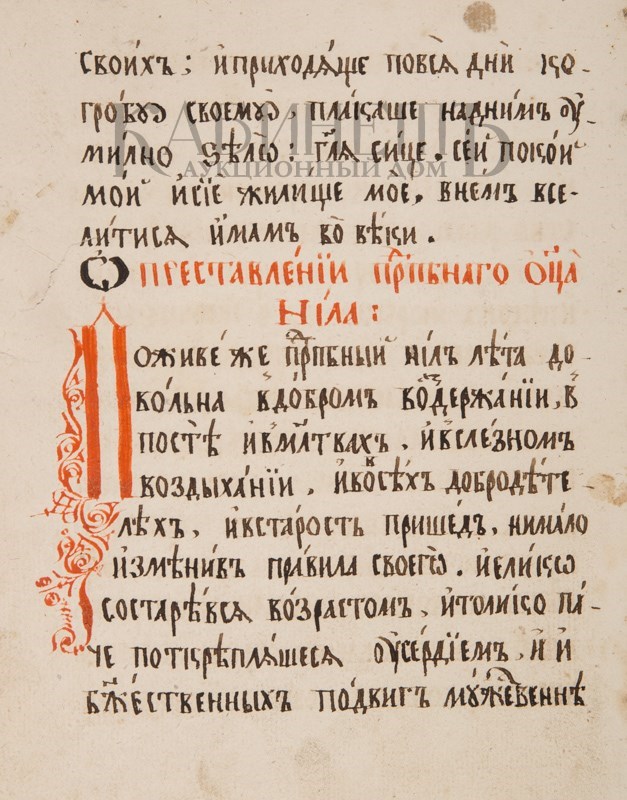 свои́хъ; и҆приходѧ́ще повсѧ̀ дни̑ ко-
гро́бꙋ своемꙋ̀, пла́каше над̾ни́мъ ᲂу҆-
ми́лно ѕѣлѡ̀: гл҃ѧ си́це. се́й поко́и
мо́й и҆сїѐ жили́ще моѐ, внем̾ все-
ли́тисѧ и҆́мамъ во вѣ́ки.
Ѡ преставле́нїи прпⷣбнаго ѻ҆ц҃а̀
Ни́ла:
Поживе́ же прпⷣбный ні́лъ лѣ́та до
во́льна вдо́бромъ воздержа́нїи, в
постѣ̀ и҆вмл҃твахъ, и҆всле́зномъ
воздыха́нїи, и҆вовсѣ́хъ добродѣ́те-
лѣхъ, и҆вста́рость прише́дъ, нима́ло
и҆змѣни́въ пра́вила своегѡ̀. и҆е́лико
состарѣ́всѧ во́зрастомъ, и҆толи́ко па́-
че поткрѣплѧ́шесѧ ᲂу҆се́рдїемъ, и҆ и҆
бж҃е́ственныхъ по́двигъ мꙋ́жественнѣ
КАБИНЕТЪ
АУКЦИОННЫЙ ДОМ